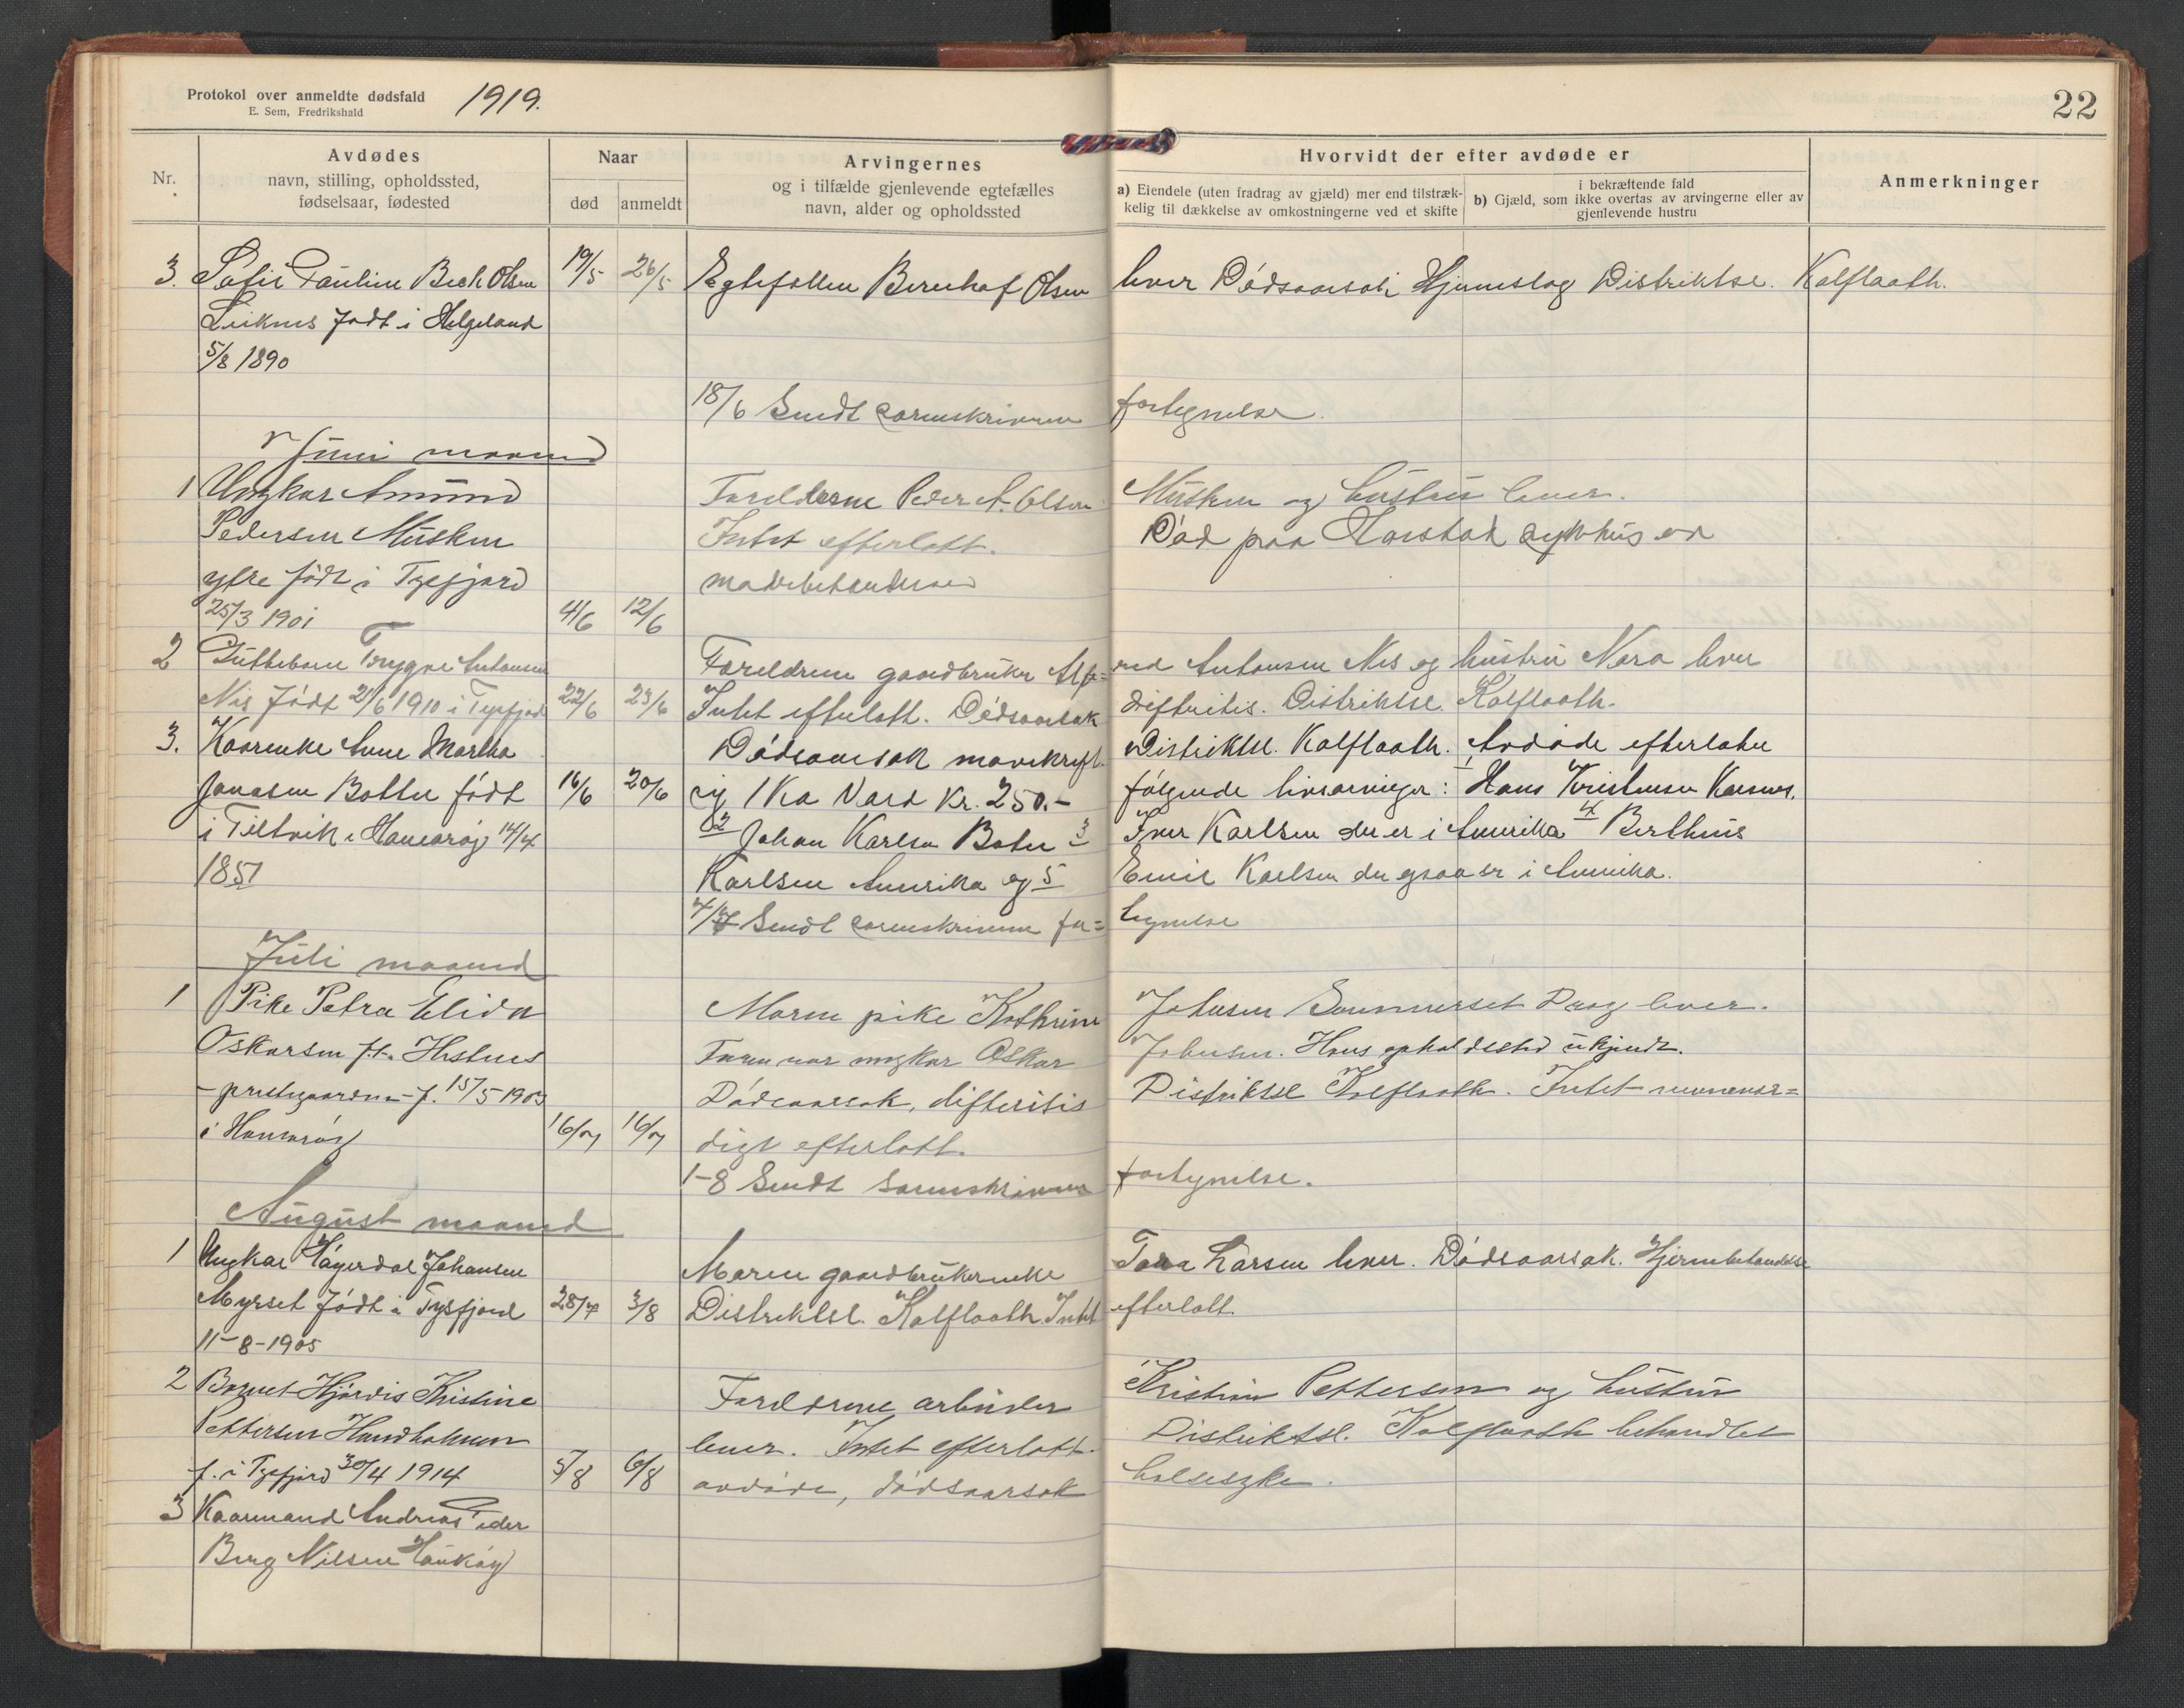 Protokol over anmeldte dødsfald 1919.
E. Sem, Fredrikshald
22
Nr.
Avdødes
navn, stilling, opholdssted,
fødselsaar, fødested
Naar
død anmeldt
Arvingernes
og i tilfælde gjenlevende egtefælles
navn, alder og opholdssted
Hvorvidt der efter avdøde er
a) Eiendele (uten fradrag av gjæld) mer end tilstræk-
kelig til dækkelse av omkostningerne ved et skifte
i bekræftende fald
b) Gjæld, som ikke overtas av arvingerne eller av
gjenlevende hustru
Anmerkninger
3. Sofie Pauline Beck Olsen 19/5 26/5 Egtefellen Bernhof Olsen lever Dødsaarsak Hjerneslag Distriktse. Kalflaath.
Leiknes født i Helgeland
5/8 1890
18/6 Sendt sorenskriveren fortegnelse.
Juni maaned
1 Ungkar Amund Foreldrene Peder A. Olsen Musken og hustru lever.
Pedersen Musken Intet efterlatt. Død paa Harstad sykehus
ytre født i Tysfjord
25/3 1901 4/6 12/6
2 Gutteborn Trygve Antonsen Foreldrene gaardbruker Alf= red Antonsen Nes og hustru Nora lever
Nes født 21/6 1910 i Tysfjord 22/6 23/6 Intet efterlatt. Dødsaarsak difteritis. Distriktse. Kalflaath.
3. Kaarenke Anne Martha Dødsaarsak mavekreft. Distriktsl. Kalflaath. Avdøde efterlater
Jonasen Botten født 16/6 20/6 sig 1 Ko Værd Kr. 250.- følgende livsarvinger: 1 Hans Kristensen Karsnes.
i Tiltvik i Hamarøy 14/4 2 Johan Karlsen Boten 3 Iver Karlsen der er i Amerika 4 Berthius
1851 Karlsen Amerika og 5 Emil Karlsen der ogsaa er i Amerika.
4/7 Sendt sorenskriveren for= tegnelse
Juli maaned
1 Pike Petra Elida Moren pike Kathrine Johnsen Sommerset Drag lever.
Oskarsen f.t. Hestnes Faren var ungkar Oskar Johnsen. Hans opholdssted ukjendt.
- prestegaarden - f. 15/5 1903 Dødsaarsak, difteritis Distriktsl Kalflaath. Intet nevnever=
i Hamarøy 16/7 16/7 digt efterlatt.
1-8 Sendt sorenskriveren fortegnelse.
August maaned
1 Ungkar Høyerdal Johansen Moren gaardbrukerenke Tora Larsen lever. Dødsaarsak. Hjernebetændelse
Myrset født i Tysfjord 28/7 3/8 Distriktsl. Kalflaath. Intet efterlatt.
11-8-1905
2 Barnet Hjørdis Kristine Foreldrene arbeider Kristian Pettersen og hustru
Pettersen Handholmen lever. Intet efterlatt. Distriktsl. Kalflaath behandlet
f. i Tysfjord 30/4 1914 5/8 6/8 avdøde, dødsaarsak halsesyke.
3 Kaarmand Andreas Peder
Berg Nilsen Haukøy